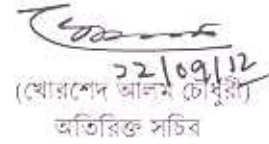 22/09/12
(খোরশেদ আলম চৌধুরী)
অতিরিক্ত সচিব